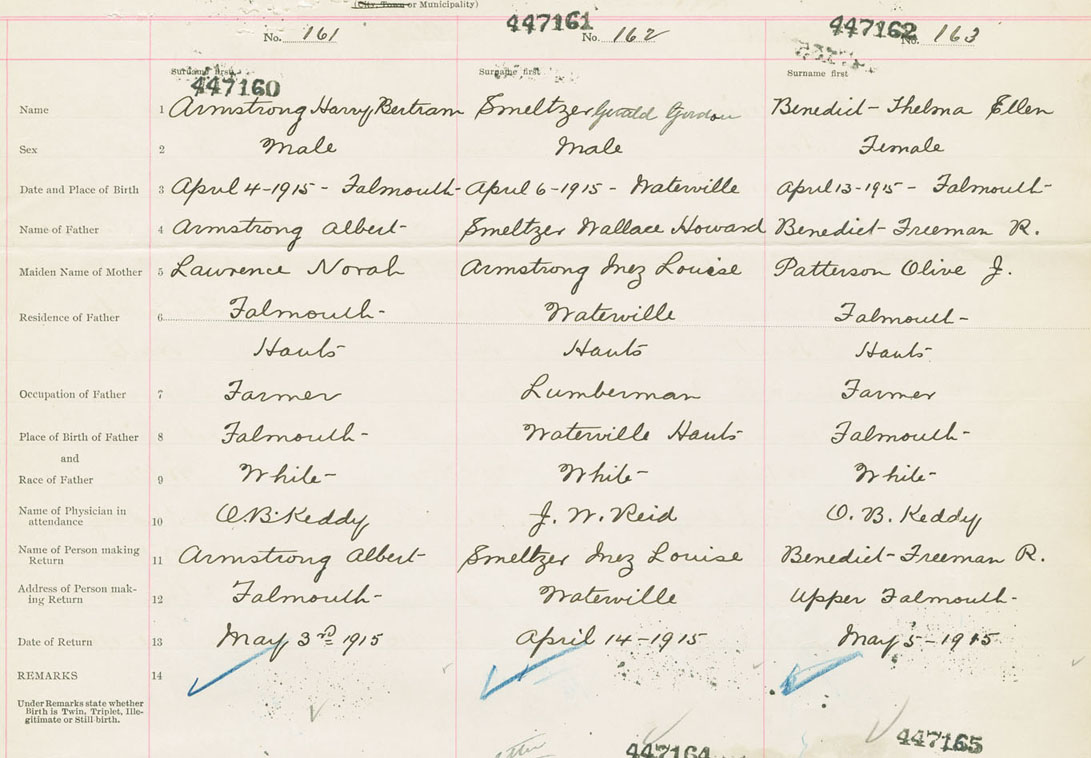 (City, Town or Municipality)
447161 447162
No. 161 No. 162 No. 163
Surname first Surname first Surname first
447160
Name 1 Armstrong Harry Bertram Smeltzer Gerald Gordon Benedict Thelma Ellen
Sex 2 Male Male Female
Date and Place of Birth 3 April 4-1915 - Falmouth April 6-1915 - Waterville April 13-1915 - Falmouth
Name of Father 4 Armstrong Albert Smeltzer Wallace Howard Benedict Freeman R.
Maiden Name of Mother 5 Lawrence Norah Armstrong Inez Louise Patterson Olive J.
Residence of Father 6 Falmouth Waterville Falmouth
Hants Hants Hants
Occupation of Father 7 Farmer Lumberman Farmer
Place of Birth of Father 8 Falmouth Waterville Hants Falmouth
and
Race of Father 9 White White White
Name of Physician in attendance 10 O. B. Keddy J. W. Reid O. B. Keddy
Name of Person making Return 11 Armstrong Albert Smeltzer Inez Louise Benedict Freeman R.
Address of Person mak-
ing Return 12 Falmouth Waterville Upper Falmouth
Date of Return 13 May 3rd 1915 April 14-1915 May 5-1915
REMARKS 14
Under Remarks state whether
Birth is Twin, Triplet, Ille-
gitimate or Still-birth.
447164 447165